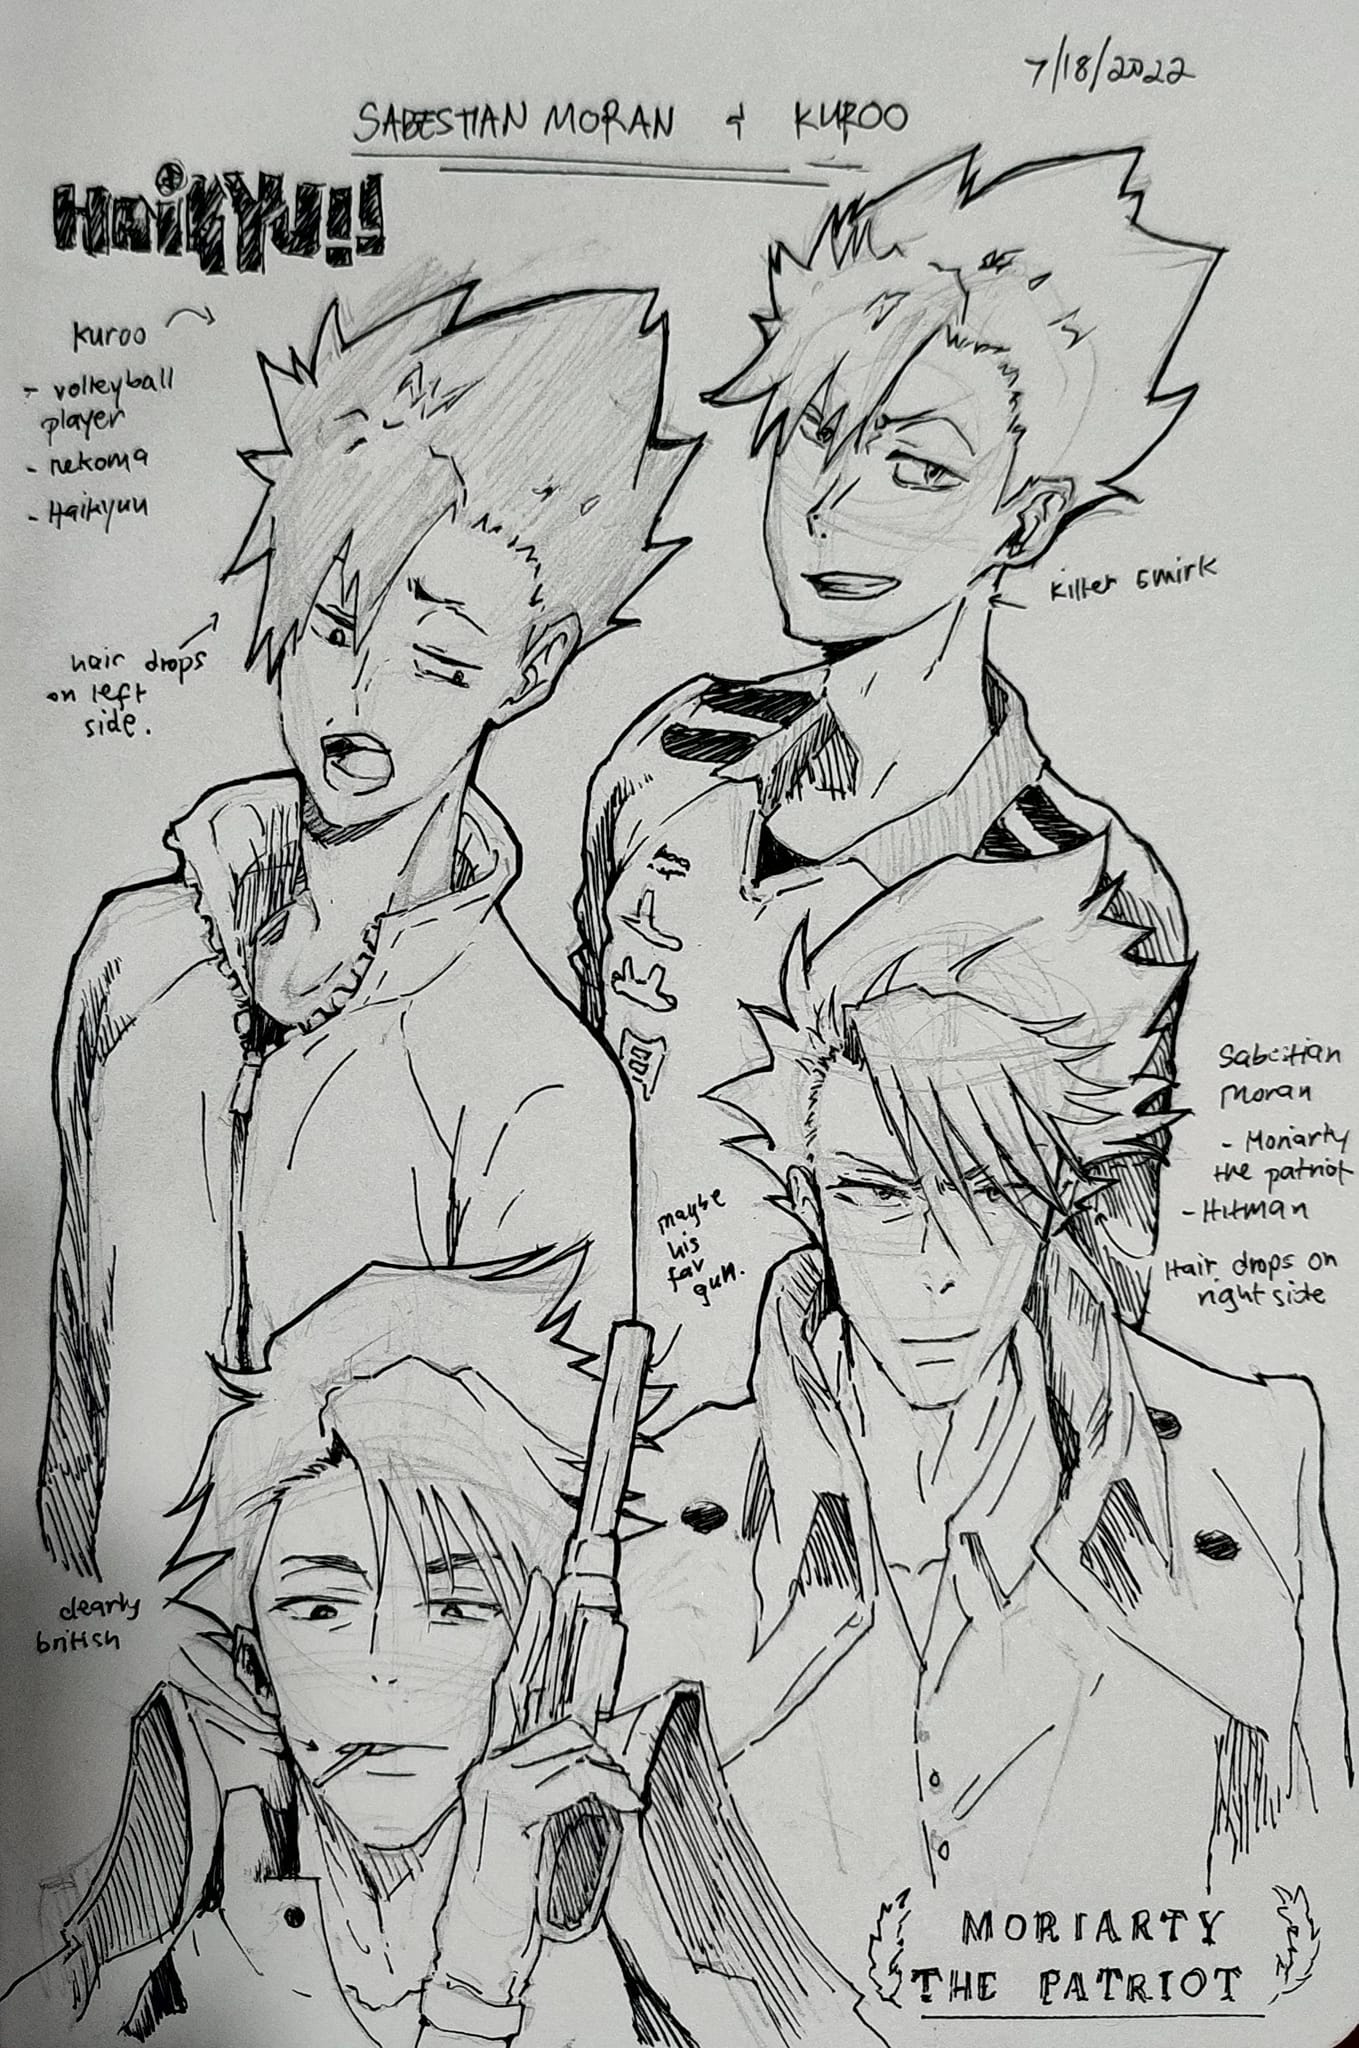 7/18/2022
SABESTIAN MORAN & KUROO
HaiKYU!!
Kuroo
- volleyball
player
- nekoma
- Haikyuu
hair drops
on left
side.
killer smirk
Sabestian
Moran
- Moriarty
the patriot
- Hitman
Hair drops on
right side
maybe
his
fav
gun.
clearly
british
MORIARTY
THE PATRIOT